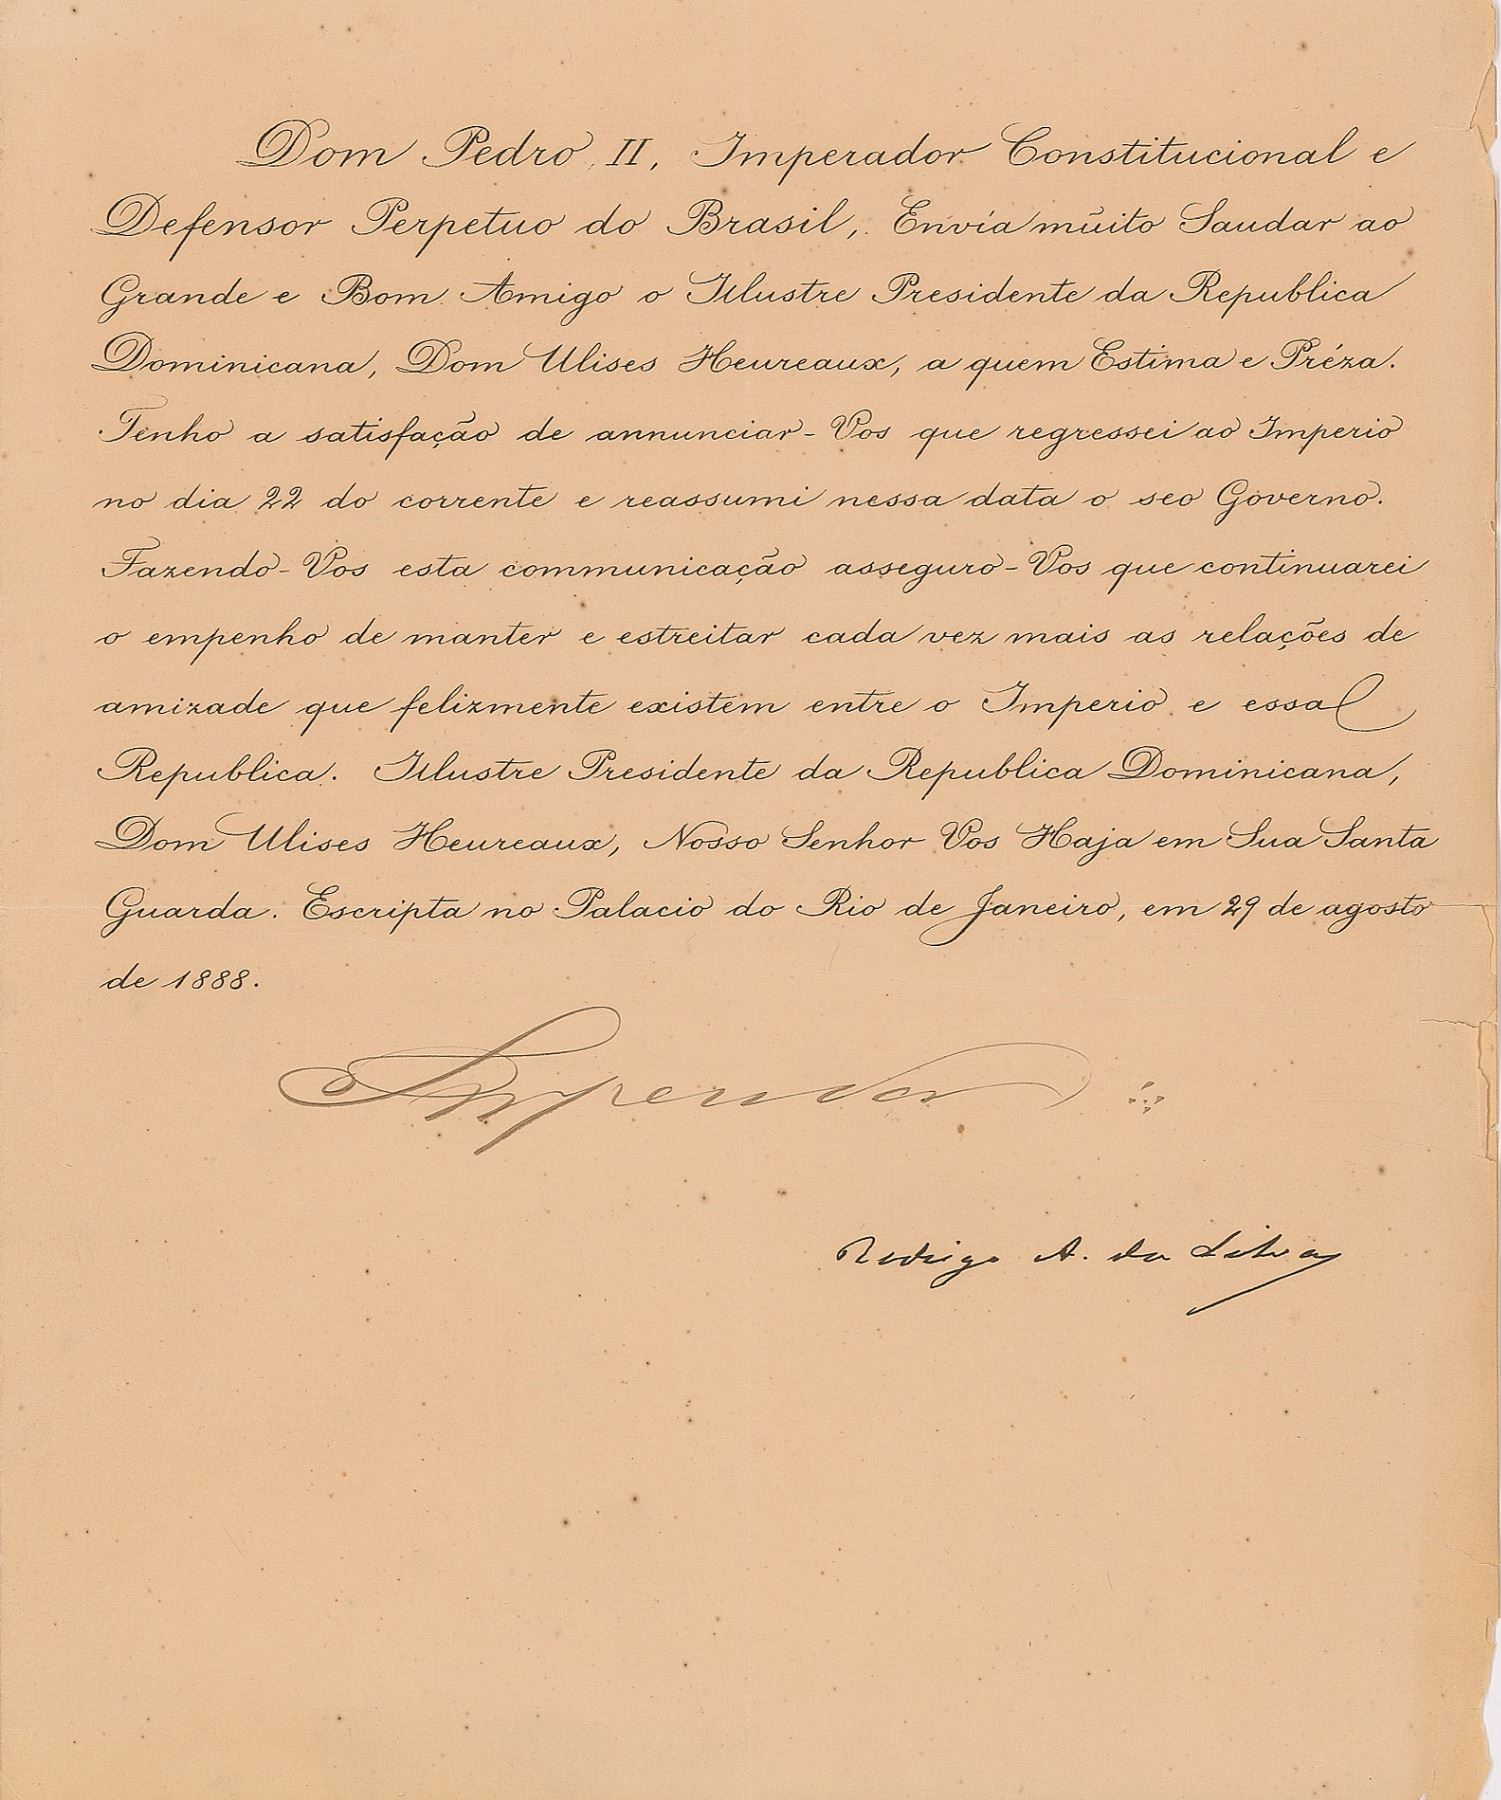 Dom Pedro II, Imperador Constitucional e
Defensor Perpetuo do Brasil, Envia muito Saudar ao
Grande e Bom Amigo o Illustre Presidente da Republica
Dominicana, Dom Ulises Heureaux, a quem Estima e Préza.
Tenho a satisfação de annunciar-Vos que regressei ao Imperio
no dia 22 do corrente e reassumi nessa data o seo Governo.
Fazendo-Vos esta communicação asseguro-Vos que continuarei
o empenho de manter e estreitar cada vez mais as relações de
amizade que felizmente existem entre o Imperio e essa
Republica. Illustre Presidente da Republica Dominicana,
Dom Ulises Heureaux, Nosso Senhor Vos Haja em Sua Santa
Guarda. Escripta no Palacio do Rio de Janeiro, em 29 de agosto
de 1888.
Imperador
Rodrigo A. da Silva